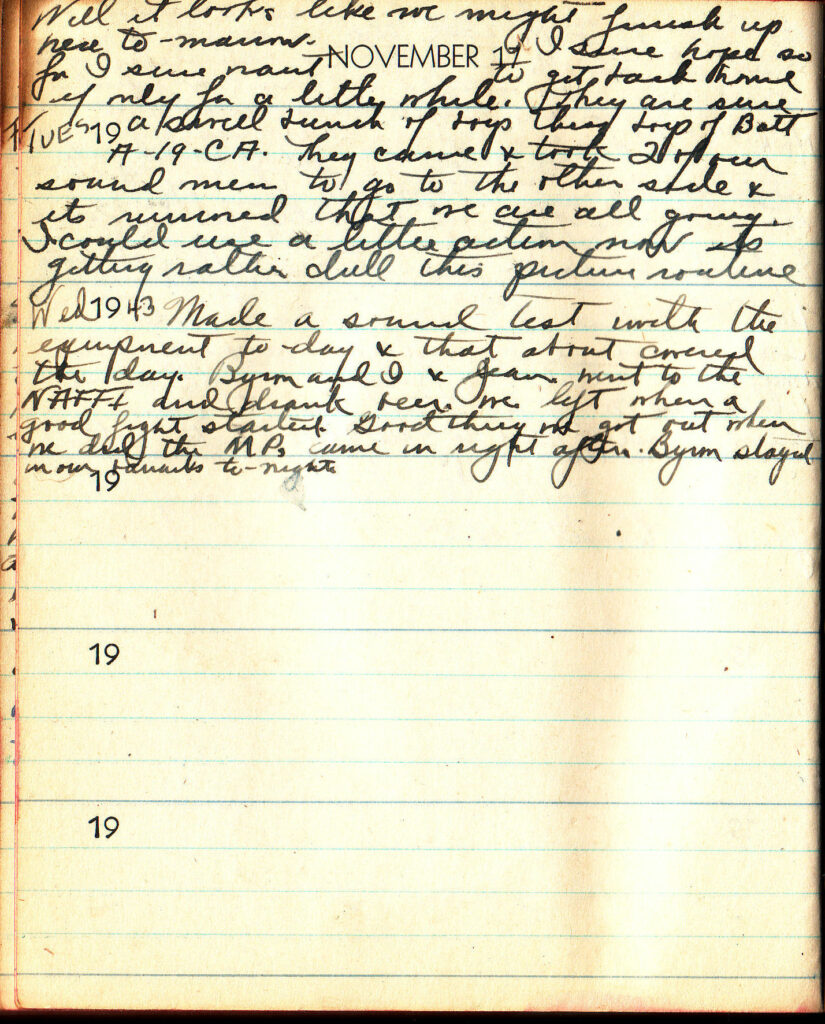 Well it looks like we might finish up
here to-morrow. I sure hope so
NOVEMBER 17
for I sure want to get back home
if only for a little while. They are sure
TUES 19 a swell bunch of boys these boys of Batt
A-19-CA. They came & took 2 of our
sound men to go to the other side &
its rumored that we are all going.
I could use a little action now its
getting rather dull this picture routine
Wed 1943 Made a sound test with the
equipment to-day & that about covered
the day. Byron and I & Jean went to the
NAFFI and drank beer. We left when a
good fight started. Good thing we got out when
we did the MPs came in right after. Byron stayed
in our to-night
19
19
19